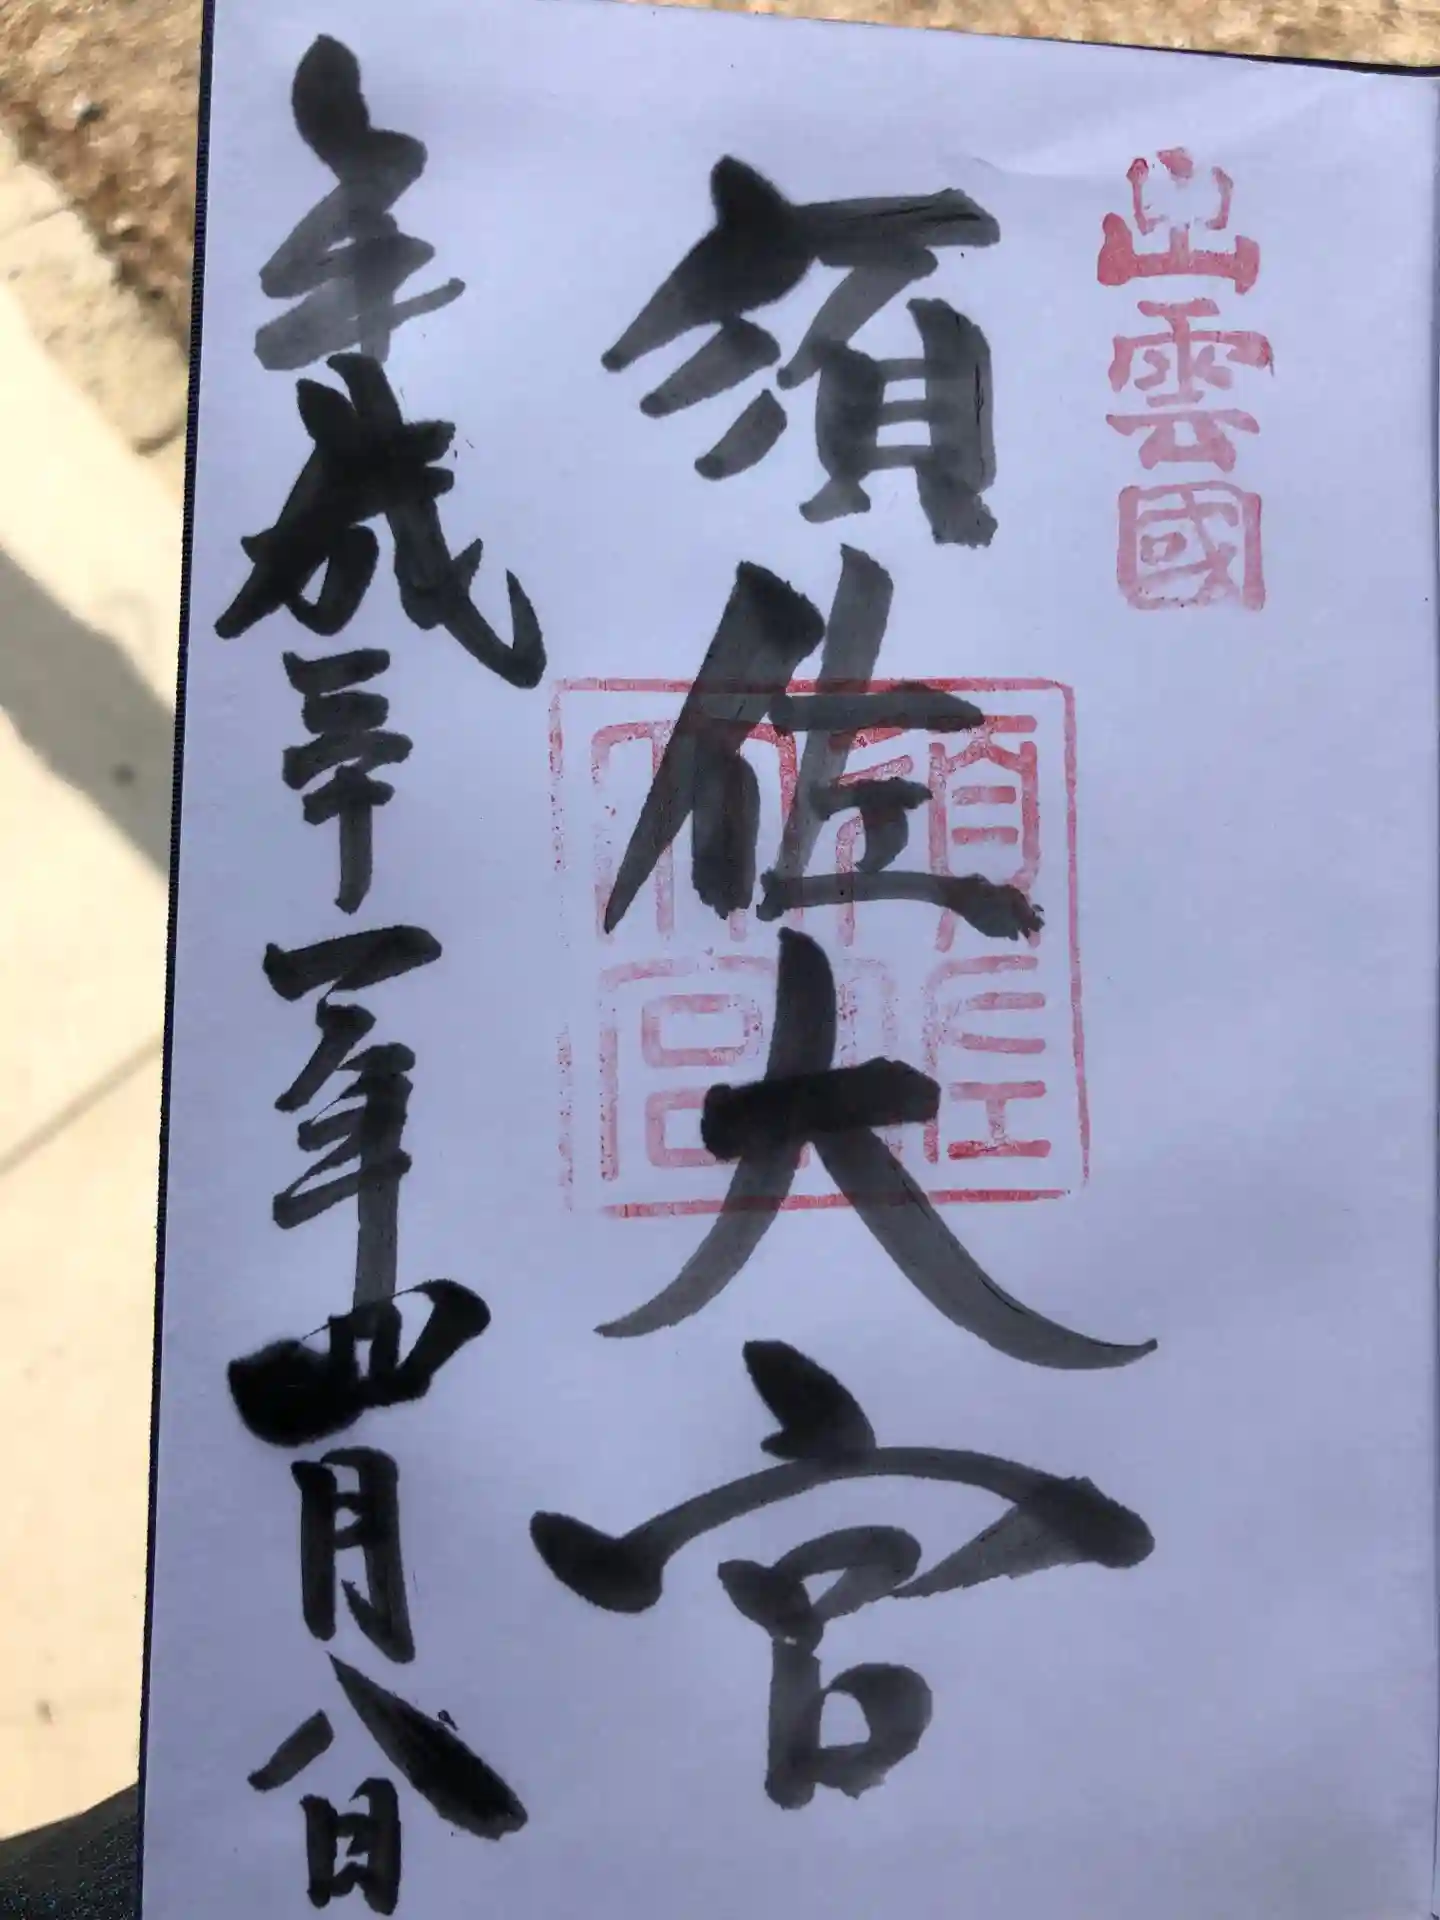 出雲國
須佐大宮
須佐
大宮
平成三十一年四月八日